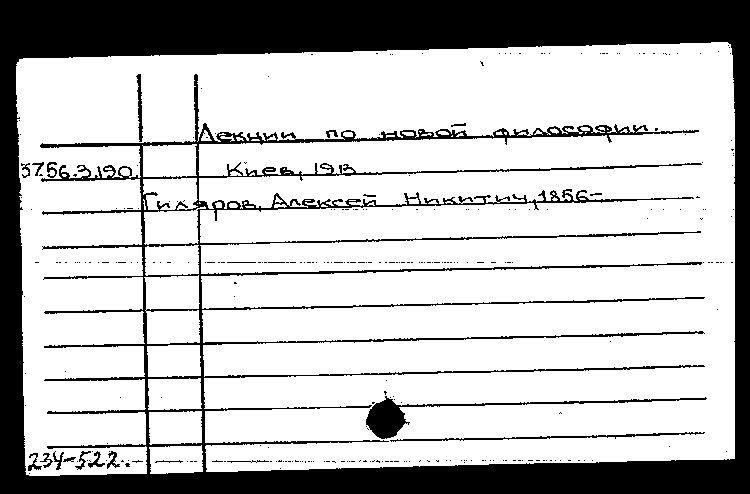 Лекции по новой философии.
5756.3.190. Киев, 1913
Гиляров, Алексей Никитич, 1856-
234-522.